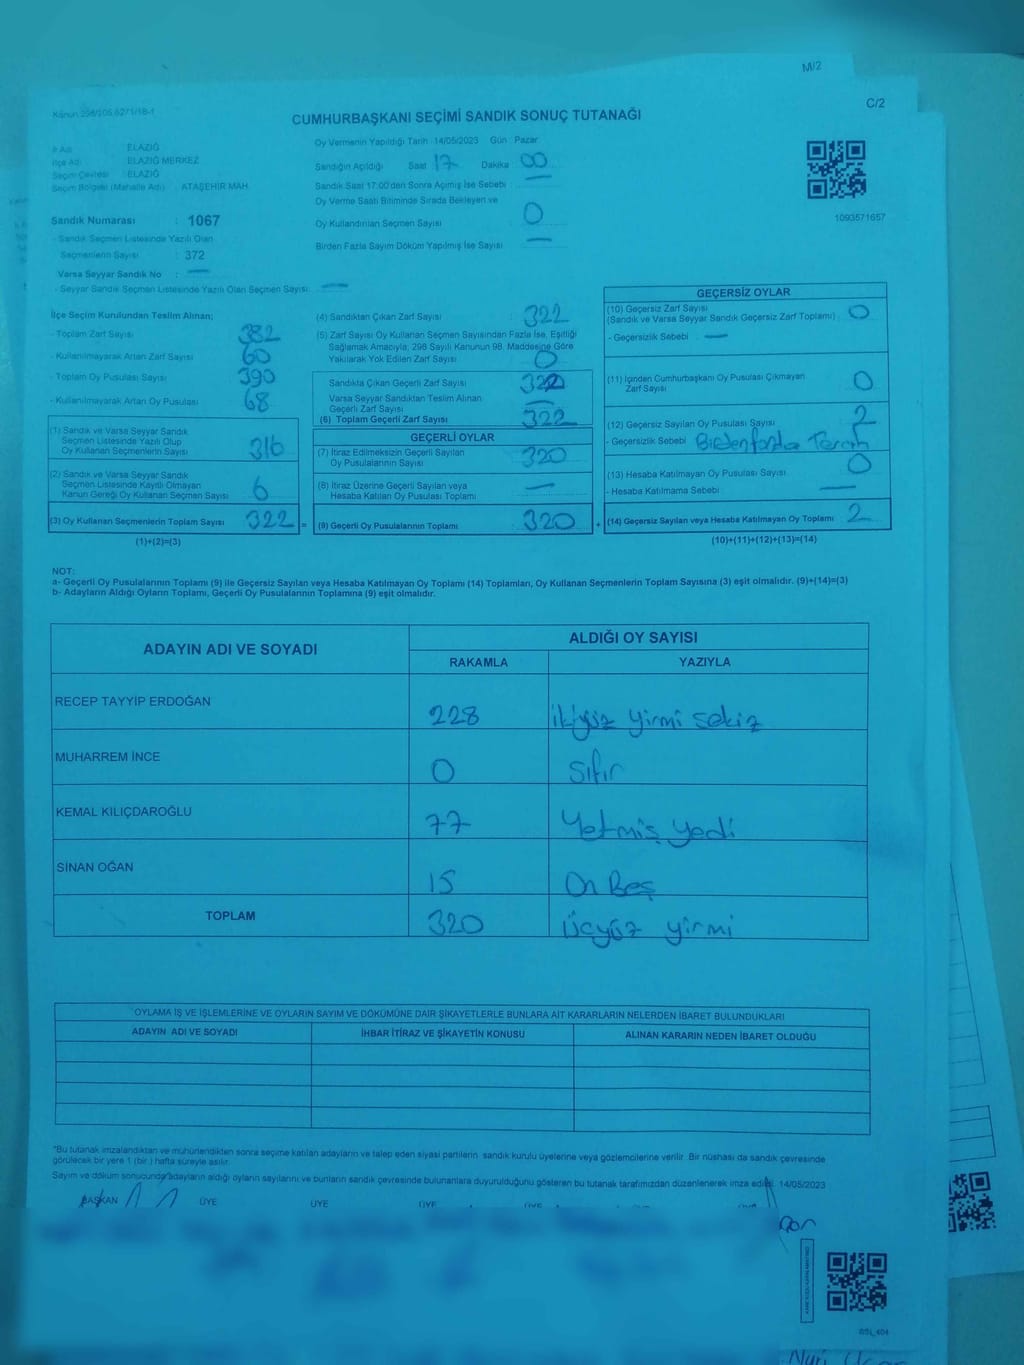 M/2
C/2
CUMHURBAŞKANI SEÇİMİ SANDIK SONUÇ TUTANAĞI
İl Adı : ELAZIĞ
İlçe Adı : ELAZIĞ MERKEZ
Seçim Çevresi : ELAZIĞ
Seçim Bölgesi (Mahalle Adı) : ATAŞEHİR MAH.
Sandık Numarası : 1067
- Sandık Seçmen Listesinde Yazılı Olan
Seçmenlerin Sayısı : 372
Varsa Seyyar Sandık No : —
- Seyyar Sandık Seçmen Listesinde Yazılı Olan Seçmen Sayısı : —
Oy Vermenin Yapıldığı Tarih 14/05/2023 Gün : Pazar
Sandığın Açıldığı Saat 17 Dakika 00
Sandık Saat 17:00'den Sonra Açımış İse Sebebi : —
Oy Verme Saati Bitiminde Sırada Bekleyen ve
Oy Kullandırılan Seçmen Sayısı : 0
Birden Fazla Sayım Döküm Yapılmış İse Sayısı : —
1093571657
İlçe Seçim Kurulundan Teslim Alınan;
- Toplam Zarf Sayısı : 382
- Kullanılmayarak Artan Zarf Sayısı : 60
- Toplam Oy Pusulası Sayısı : 390
- Kullanılmayarak Artan Oy Pusulası : 68
(1) Sandık ve Varsa Seyyar Sandık
Seçmen Listesinde Yazılı Olup
Oy Kullanan Seçmenlerin Sayısı : 316
(2) Sandık ve Varsa Seyyar Sandık
Seçmen Listesinde Kayıtlı Olmayan
Kanun Gereği Oy Kullanan Seçmen Sayısı : 6
(3) Oy Kullanan Seçmenlerin Toplam Sayısı : 322 =
(1)+(2)=(3)
(4) Sandıktan Çıkan Zarf Sayısı : 322
(5) Zarf Sayısı Oy Kullanan Seçmen Sayısından Fazla İse, Eşitliği
Sağlamak Amacıyla, 298 Sayılı Kanunun 98. Maddesine Göre
Yakılarak Yok Edilen Zarf Sayısı : 0
Sandıkta Çıkan Geçerli Zarf Sayısı : 322
Varsa Seyyar Sandıktan Teslim Alınan
Geçerli Zarf Sayısı : —
(6) Toplam Geçerli Zarf Sayısı : 322
GEÇERLİ OYLAR
(7) İtiraz Edilmeksizin Geçerli Sayılan
Oy Pusulalarının Sayısı : 320
(8) İtiraz Üzerine Geçerli Sayılan veya
Hesaba Katılan Oy Pusulası Toplamı : —
(9) Geçerli Oy Pusulalarının Toplamı : 320 +
GEÇERSİZ OYLAR
(10) Geçersiz Zarf Sayısı
(Sandık ve Varsa Seyyar Sandık Geçersiz Zarf Toplamı) : 0
- Geçersizlik Sebebi : —
(11) İçinden Cumhurbaşkanı Oy Pusulası Çıkmayan
Zarf Sayısı : 0
(12) Geçersiz Sayılan Oy Pusulası Sayısı : 2
- Geçersizlik Sebebi : Birdenfazla Tercih
(13) Hesaba Katılmayan Oy Pusulası Sayısı : 0
- Hesaba Katılmama Sebebi : —
(14) Geçersiz Sayılan veya Hesaba Katılmayan Oy Toplamı : 2
(10)+(11)+(12)+(13)=(14)
NOT:
a- Geçerli Oy Pusulalarının Toplamı (9) ile Geçersiz Sayılan veya Hesaba Katılmayan Oy Toplamı (14) Toplamları, Oy Kullanan Seçmenlerin Toplam Sayısına (3) eşit olmalıdır. (9)+(14)=(3)
b- Adayların Aldığı Oyların Toplamı, Geçerli Oy Pusulalarının Toplamına (9) eşit olmalıdır.
ADAYIN ADI VE SOYADI ALDIĞI OY SAYISI
RAKAMLA YAZIYLA
RECEP TAYYİP ERDOĞAN 228 ikiyüz yirmi sekiz
MUHARREM İNCE 0 sıfır
KEMAL KILIÇDAROĞLU 77 Yetmiş yedi
SİNAN OĞAN 15 On Beş
TOPLAM 320 Üçyüz yirmi
OYLAMA İŞ VE İŞLEMLERİNE VE OYLARIN SAYIM VE DÖKÜMÜNE DAİR ŞİKAYETLERLE BUNLARA AİT KARARLARIN NELERDEN İBARET BULUNDUKLARI
ADAYIN ADI VE SOYADI İHBAR İTİRAZ VE ŞİKAYETİN KONUSU ALINAN KARARIN NEDEN İBARET OLDUĞU
*Bu tutanak imzalandıktan ve mühürlendikten sonra seçime katılan adayların ve talep eden siyasi partilerin sandık kurulu üyelerine veya gözlemcilerine verilir. Bir nüshası da sandık çevresinde
görülecek bir yere 1 (bir ) hafta süreyle asılır.
Sayım ve döküm sonucunda adayların aldığı oyların sayılarını ve bunların sandık çevresinde bulunanlara duyurulduğunu gösteren bu tutanak tarafımızdan düzenlenerek imza edildi. 14/05/2023
BAŞKAN ÜYE ÜYE ÜYE ÜYE